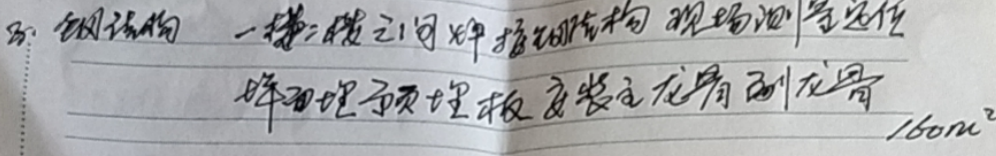 3. 钢结构 一楼二楼之间焊接钢结构 现场测量定位
焊预埋板 安装主龙骨副龙骨
160m²